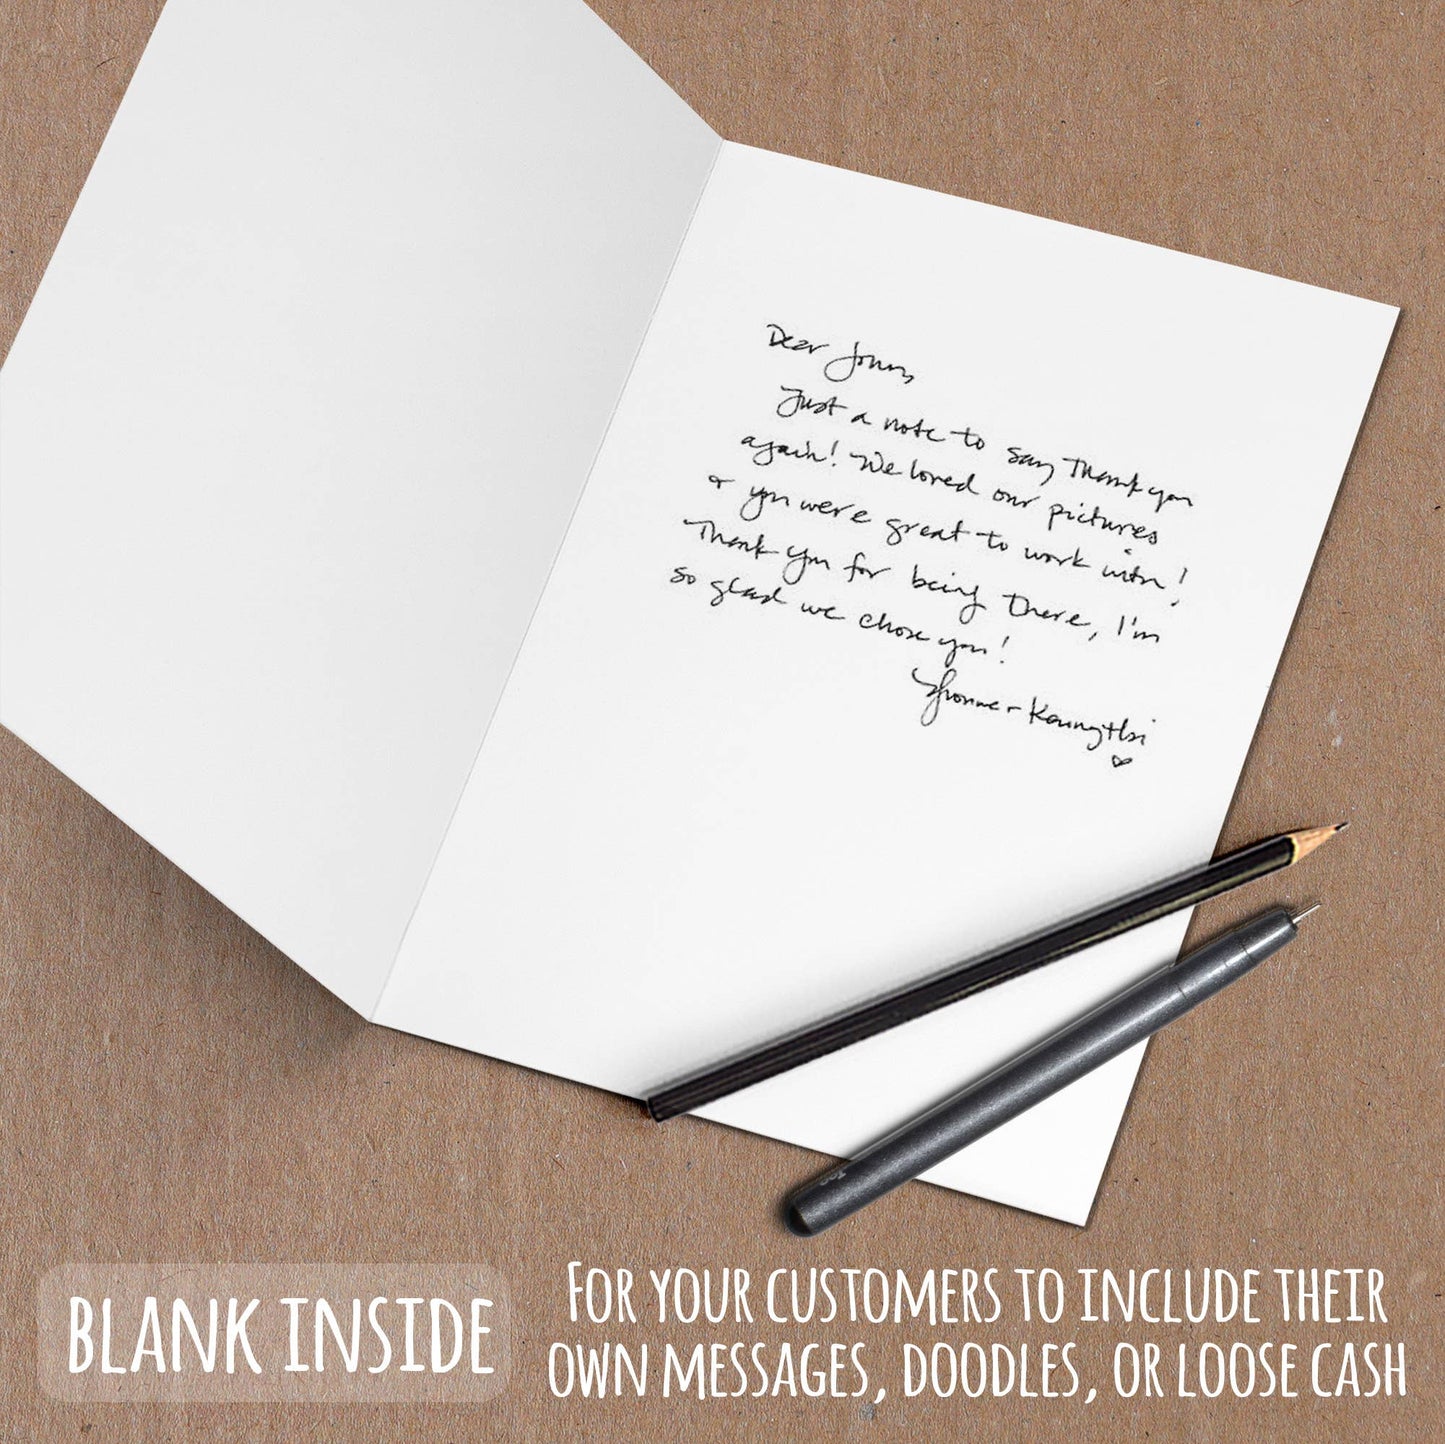 Dear Jonas,
Just a note to say thank you
again! We loved our pictures
& you were great to work with!
Thank you for being there, I'm
so glad we chose you!
Yvonne + Kaungthi
BLANK INSIDE
FOR YOUR CUSTOMERS TO INCLUDE THEIR
OWN MESSAGES, DOODLES, OR LOOSE CASH